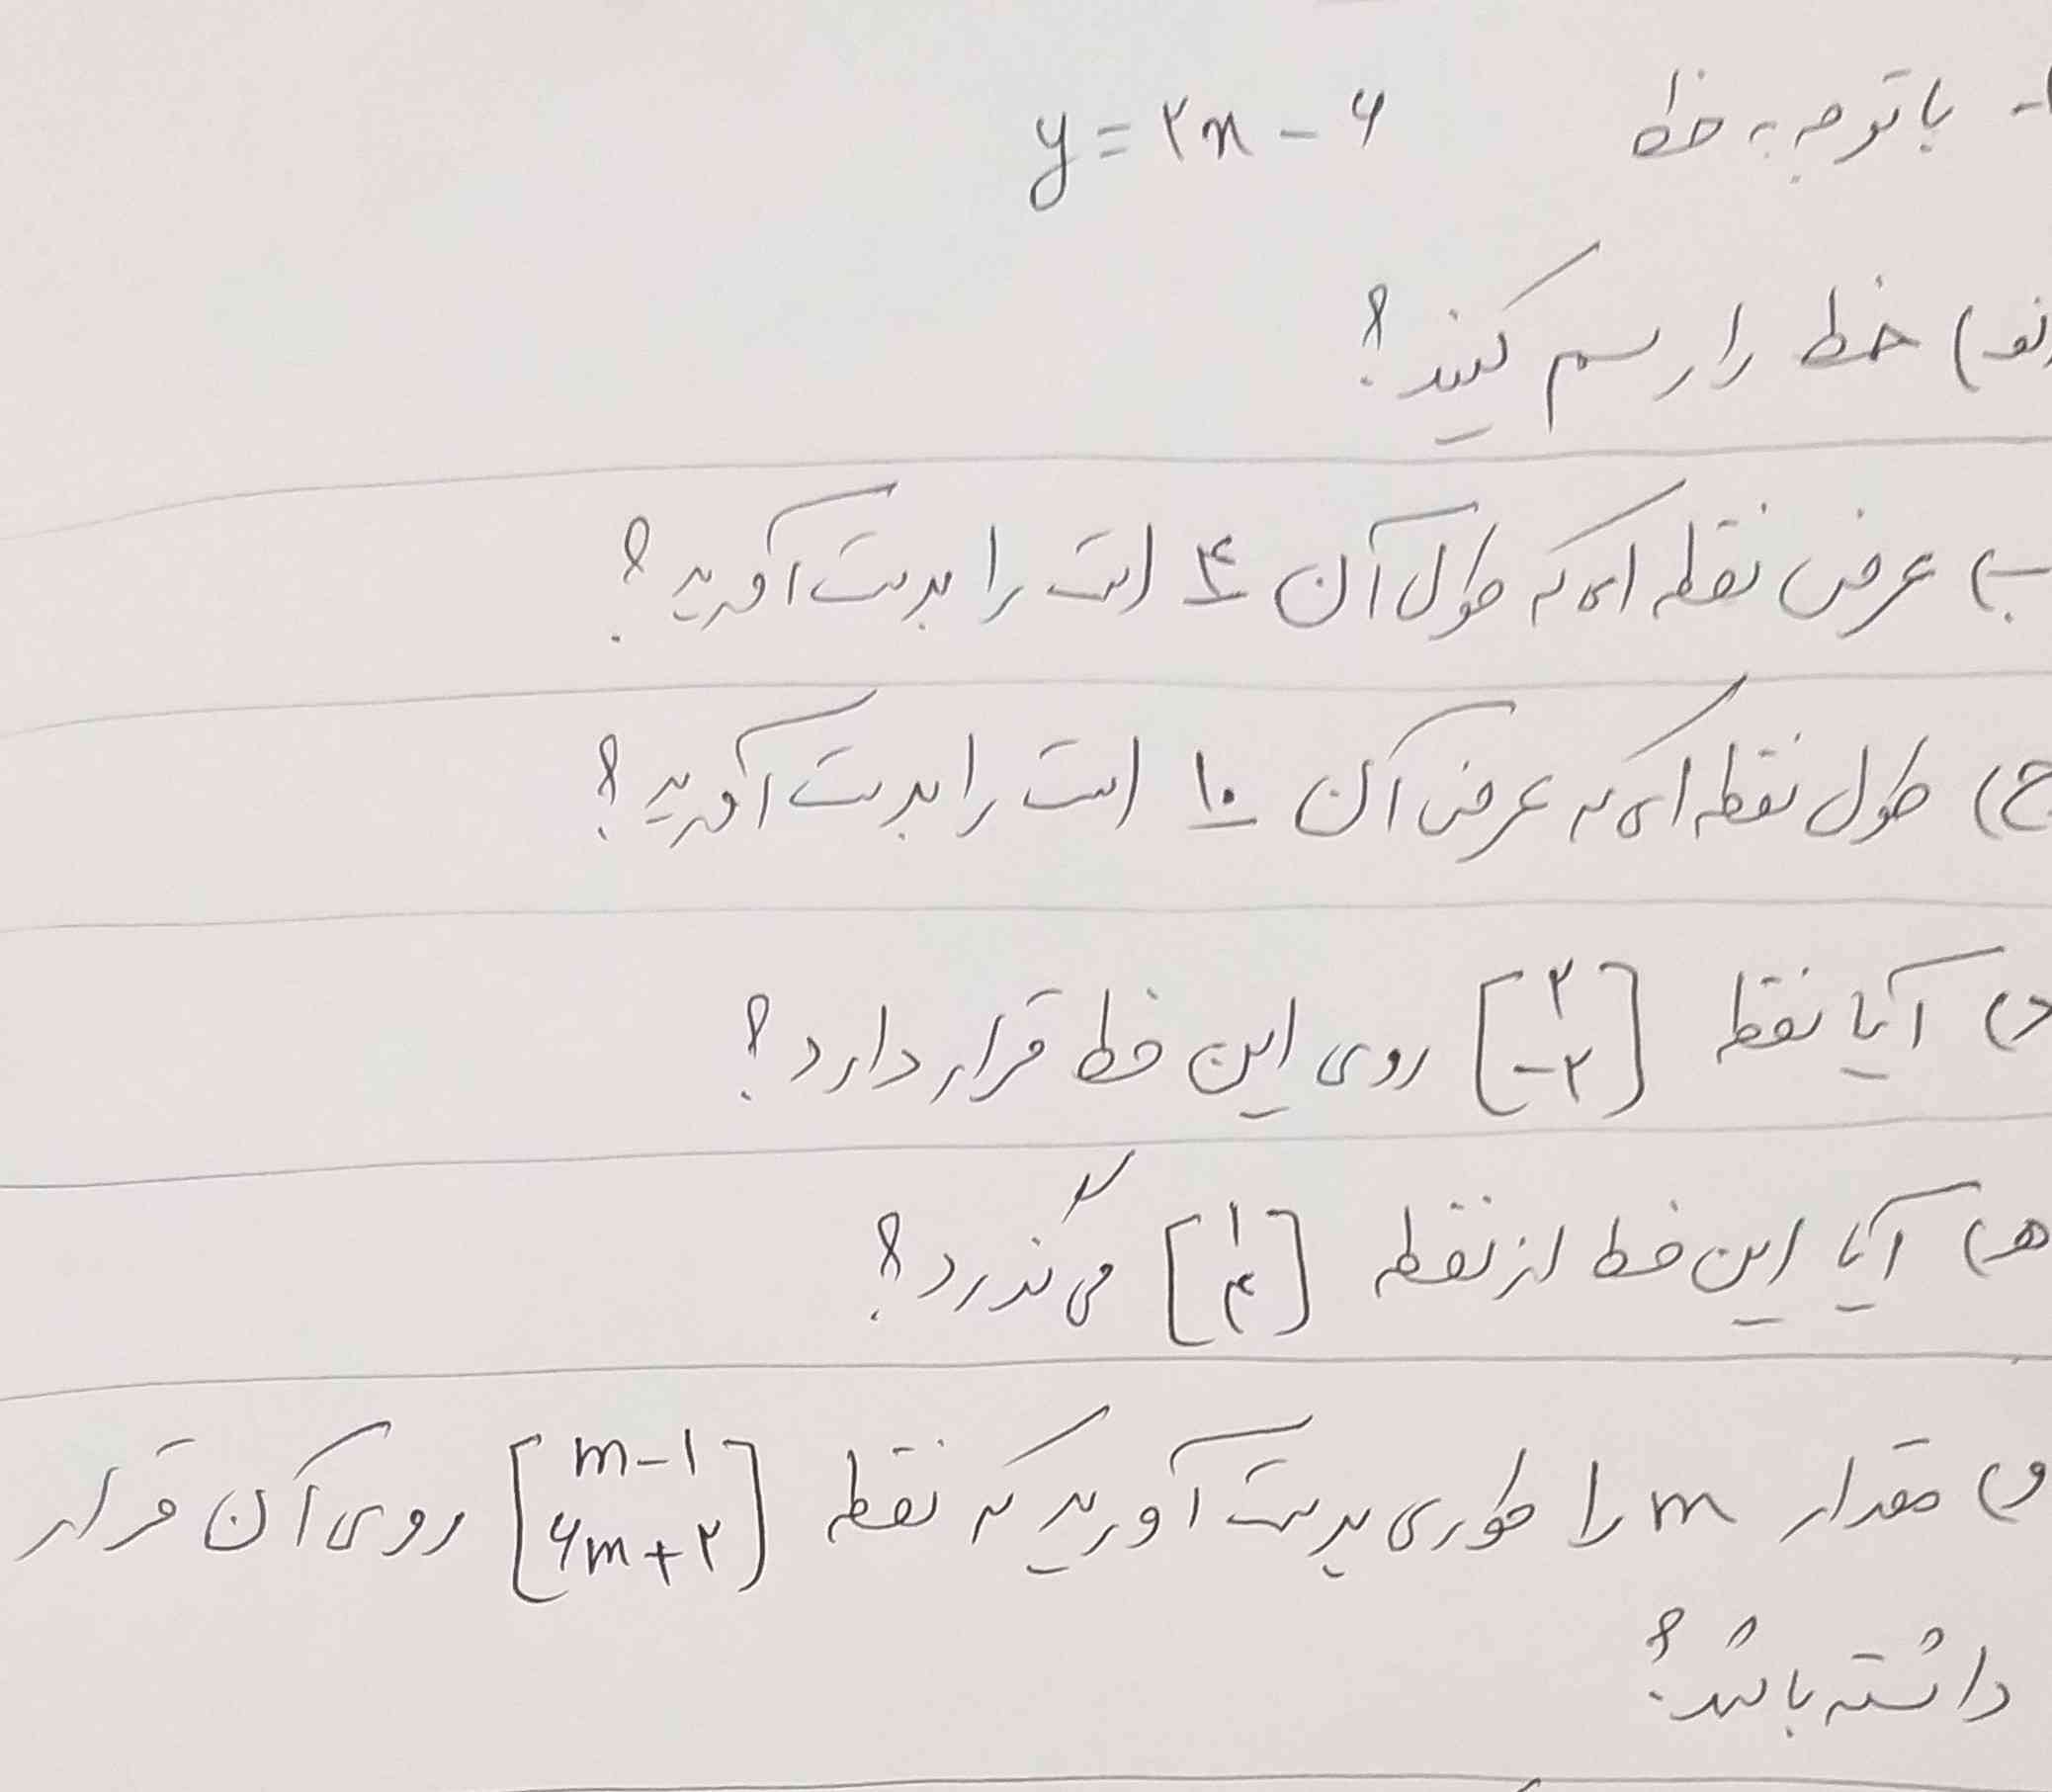 ۱- با توجه به خط y = ۲x - ۶
الف) خط را رسم کنید؟
ب) عرض نقطه ای که طول آن ۴ است را بدست آورید؟
ج) طول نقطه ای که عرض آن ۱۰ است را بدست آورید؟
د) آیا نقطه [۲ -۲] روی این خط قرار دارد؟
ه) آیا این خط از نقطه [۱ ۴] می گذرد؟
و) مقدار m را طوری بدست آورید که نقطه [m-۱ ۶m+۲] روی آن قرار
داشته باشد؟